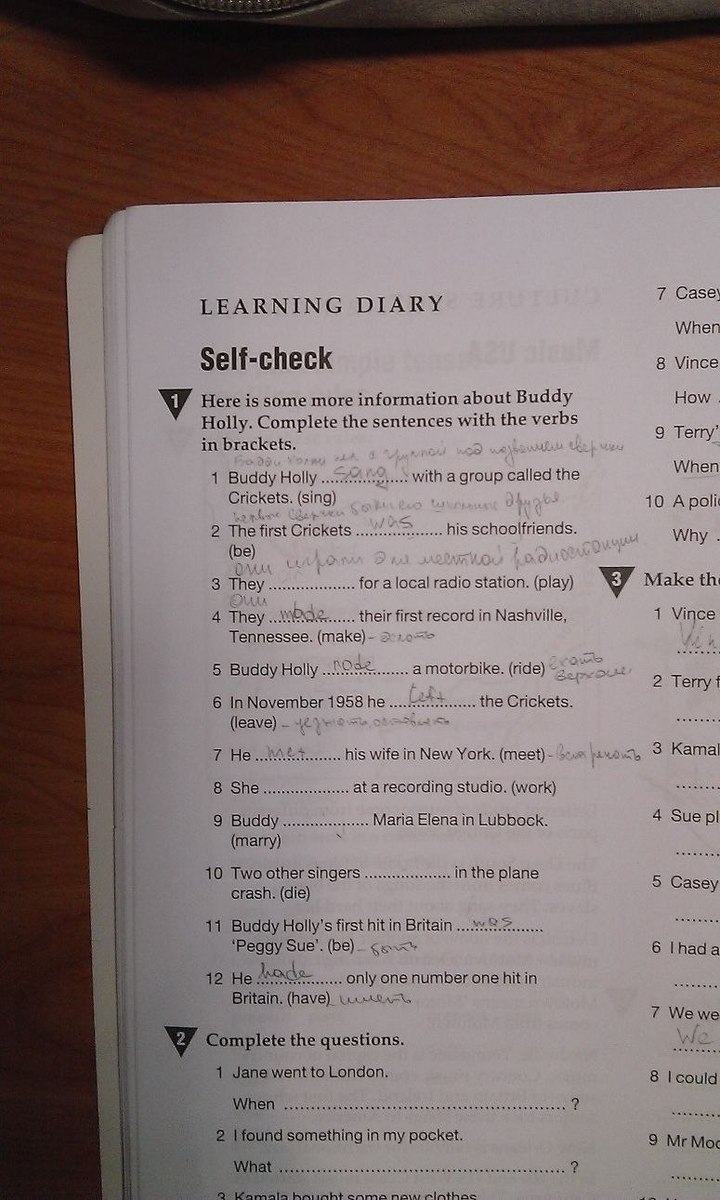 LEARNING DIARY
Self-check
1 Here is some more information about Buddy
Holly. Complete the sentences with the verbs
in brackets.
Бадди Холли пел с группой под названием сверчки
1 Buddy Holly ...sang... with a group called the
Crickets. (sing)
первые сверчки были его школьные друзья
2 The first Crickets ...was... his schoolfriends.
(be)
они играли для местной радиостанции
3 They ................... for a local radio station. (play)
они
4 They ...made... their first record in Nashville,
Tennessee. (make) - делать
5 Buddy Holly ...rode... a motorbike. (ride) ехать
верхом
6 In November 1958 he ...left... the Crickets.
(leave) - уезжать, оставлять
7 He ...met... his wife in New York. (meet) - встречать
8 She ................... at a recording studio. (work)
9 Buddy ................... Maria Elena in Lubbock.
(marry)
10 Two other singers ................... in the plane
crash. (die)
11 Buddy Holly's first hit in Britain ...was...
'Peggy Sue'. (be) - быть
12 He ...hade... only one number one hit in
Britain. (have) иметь
2 Complete the questions.
1 Jane went to London.
When ................................................... ?
2 I found something in my pocket.
What ................................................... ?
3 Kamala bought some new clothes.
7 Casey
When
8 Vince
How .
9 Terry'
When
10 A poli
Why .
3 Make the
1 Vince
Vin
2 Terry f
3 Kamal
4 Sue pl
5 Casey
6 I had a
7 We we
We
8 I could
9 Mr Moo